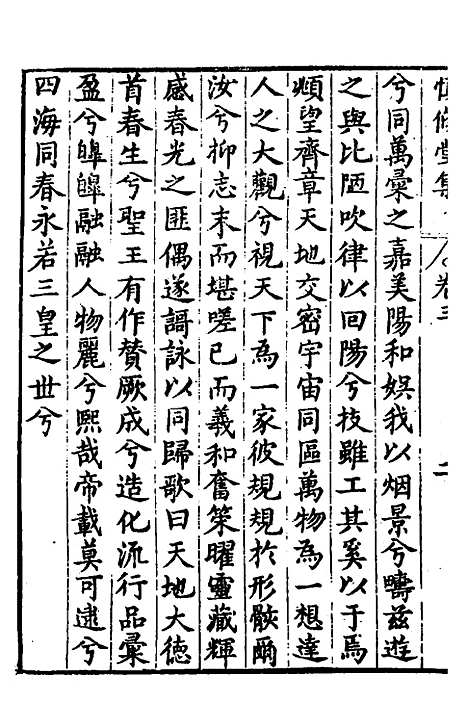 慎修堂集 卷三 二
兮同萬彚之嘉美陽和娯我以烟景兮疇茲遊
之與比陋吹律以回陽兮技雖工其奚以于焉
頫望齊章天地交密宇宙同區萬物為一想達
人之大觀兮視天下為一家彼規規扵形骸爾
汝兮抑志末而堪嗟已而羲和奮策曜靈藏輝
感春光之匪偶遂謌詠以同歸歌曰天地大德
首春生兮聖王有作賛厥成兮造化流行品彚
盈兮皥皥融融人物麗兮熙哉帝載莫可逮兮
四海同春永若三皇之丗兮